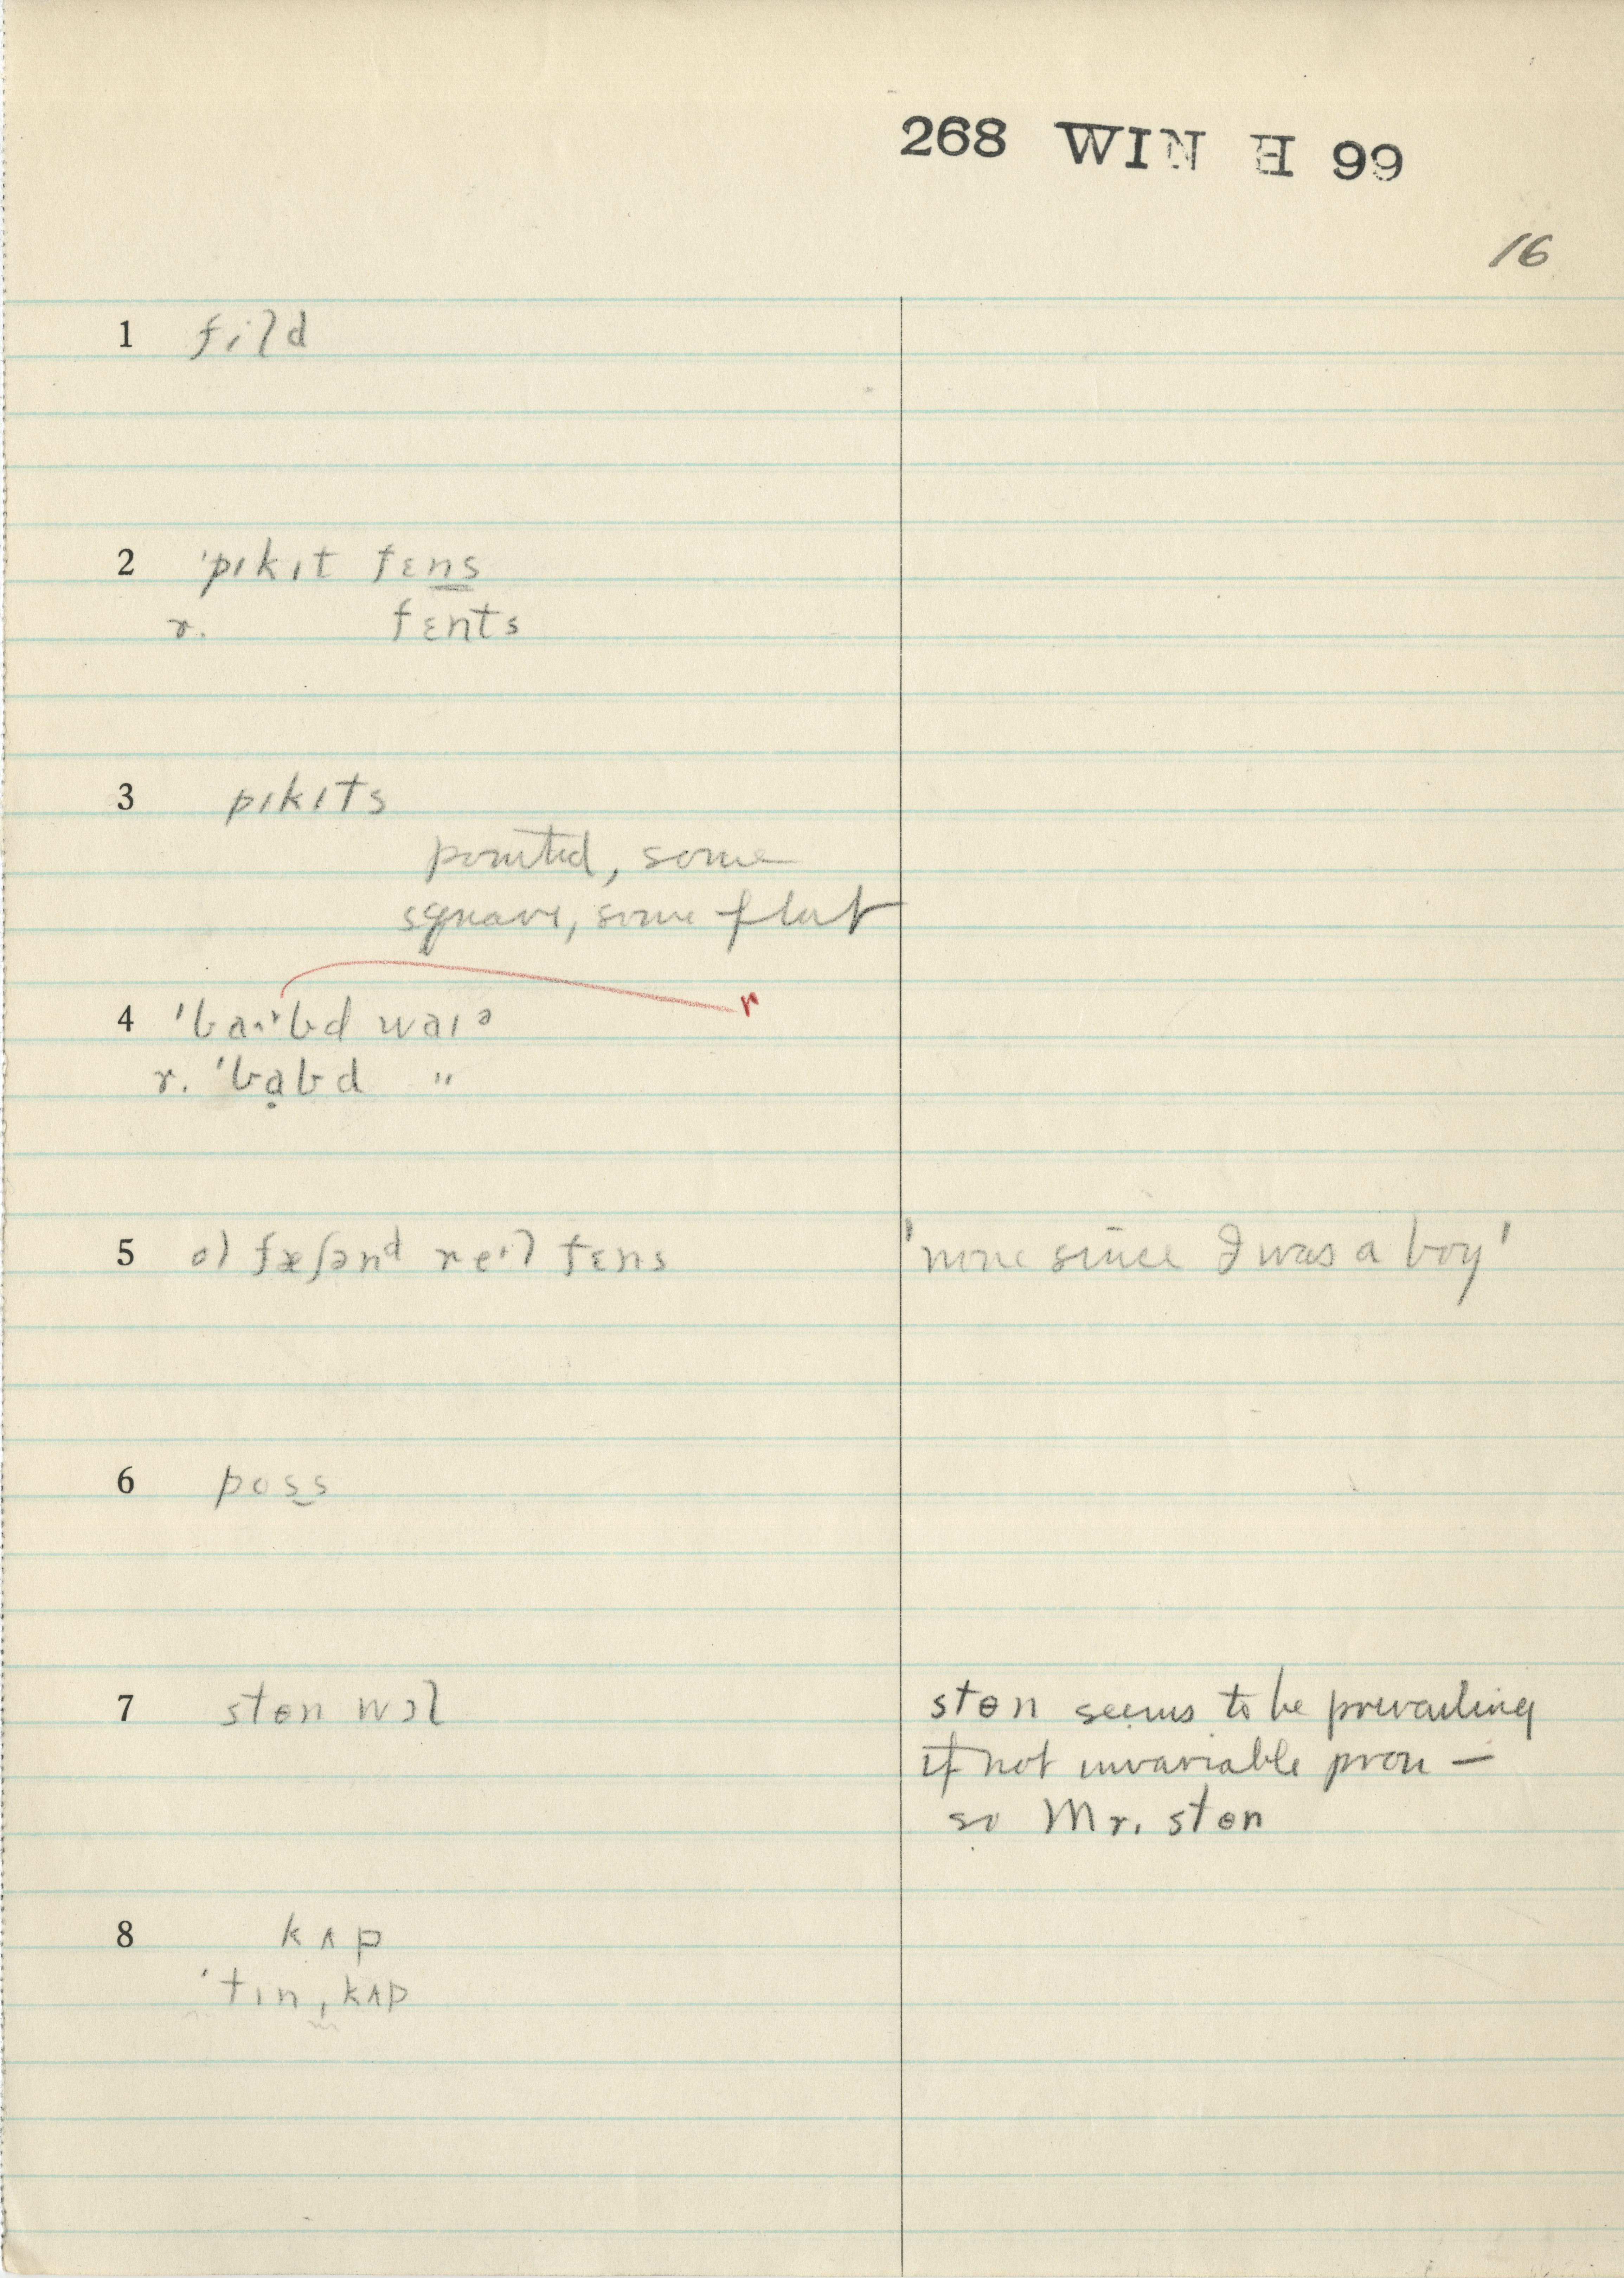 268 WIN H 99
16
1 fild
2 'pɪkɪt fɛns
r. fɛnts
3 pɪkɪts
pointed, some
square, some flat
r
4 'baɚbd waɪə
r. 'bạbd "
5 ol fæʃənd reɪl fɛns 'none since I was a boy'
6 poss
7 stɵn wɔl stɵn seems to be prevailing
if not invariable pron —
so Mr. stɵn
8 kʌp
'tɪn ˌkʌp